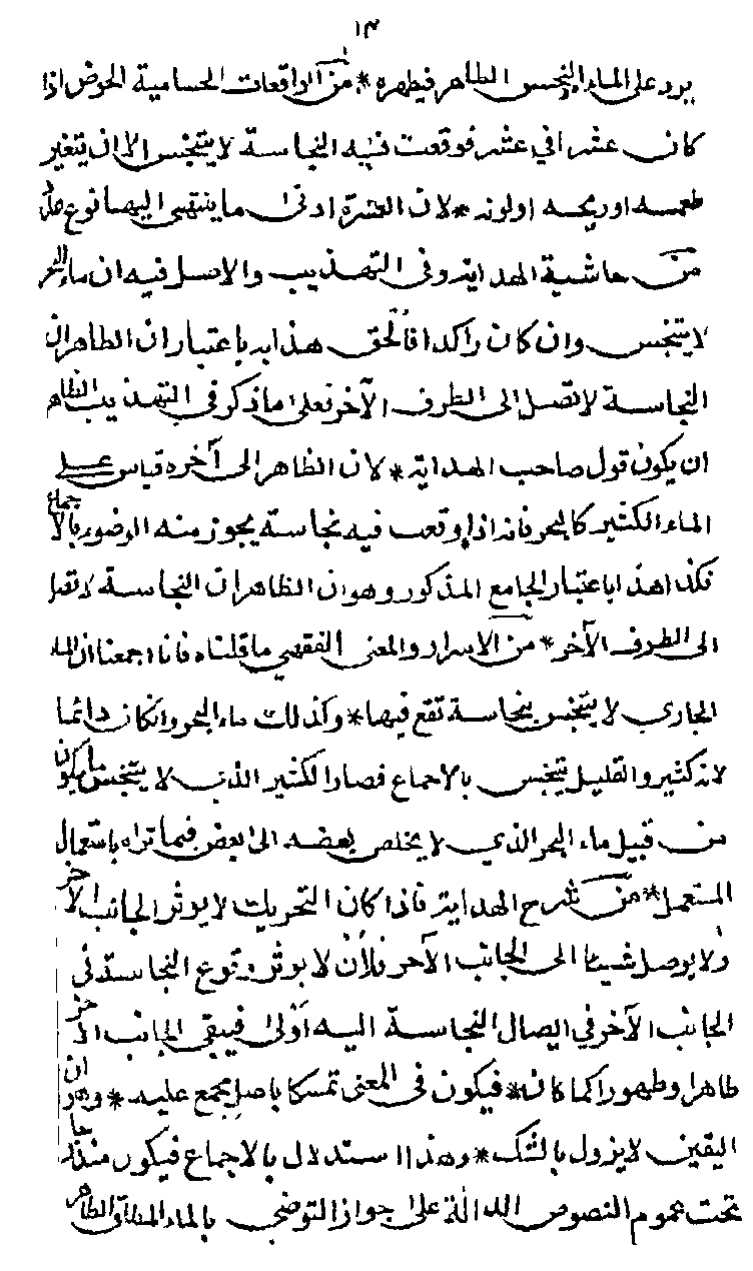 ١٣
يرد على الماء النجس الطاهر فيطهره * من الواقعات الحسامية الحوض اذا
كان عشرا في عشر فوقعت فيه النجاسة لا يتنجس الا ان يتغير
طعمه او ريحه او لونه * لان العشرة ادنى ما ينتهى اليها نوع
من حاشية الهداية وفى التهذيب والاصل فيه ان ماء البحر
لا يتنجس وان كان راكدا فالحق هذا به باعتبار ان الظاهر ان
النجاسة لا تصل الى الطرف الآخر فعلى ما ذكر في التهذيب الظاهر
ان يكون قول صاحب الهداية * لان الظاهر الى آخره قياس على
الماء الكثير كالبحر فانه اذا وقعت فيه نجاسة يجوز منه الوضوء بالاجماع
فكذا هذا باعتبار الجامع المذكور وهو ان الظاهر ان النجاسة لا تصل
الى الطرف الآخر * من الاسرار والمعنى الفقهي ما قلناه فانا اجمعنا ان الماء
الجاري لا يتنجس بنجاسة تقع فيها * وكذلك ماء البحر وان كان دائما
لانه كثير والقليل يتنجس بالاجماع فصار الكثير الذى لا يتنجس ما يكون
من قبيل ماء البحر الذي لا يخلص بعضه الى بعض فيما تراه باستعمال
المستعمل * من شرح الهداية فاذا كان التحريك لا يوثر الجانب الآخر
ولا يوصل شيئا الى الجانب الآخر فلأن لا يوثر وقوع النجاسة في
الجانب الآخر في ايصال النجاسة اليه أولى فيبقى الجانب الآخر
طاهرا وطهورا كما كان * فيكون فى المعنى تمسكا باصل مجمع عليه * وهو ان
اليقين لا يزول بالشك * وهذا استدلال بالاجماع فيكون مندرجا
تحت عموم النصوص الدالة على جواز التوضى بالماء المطلق الطاهر